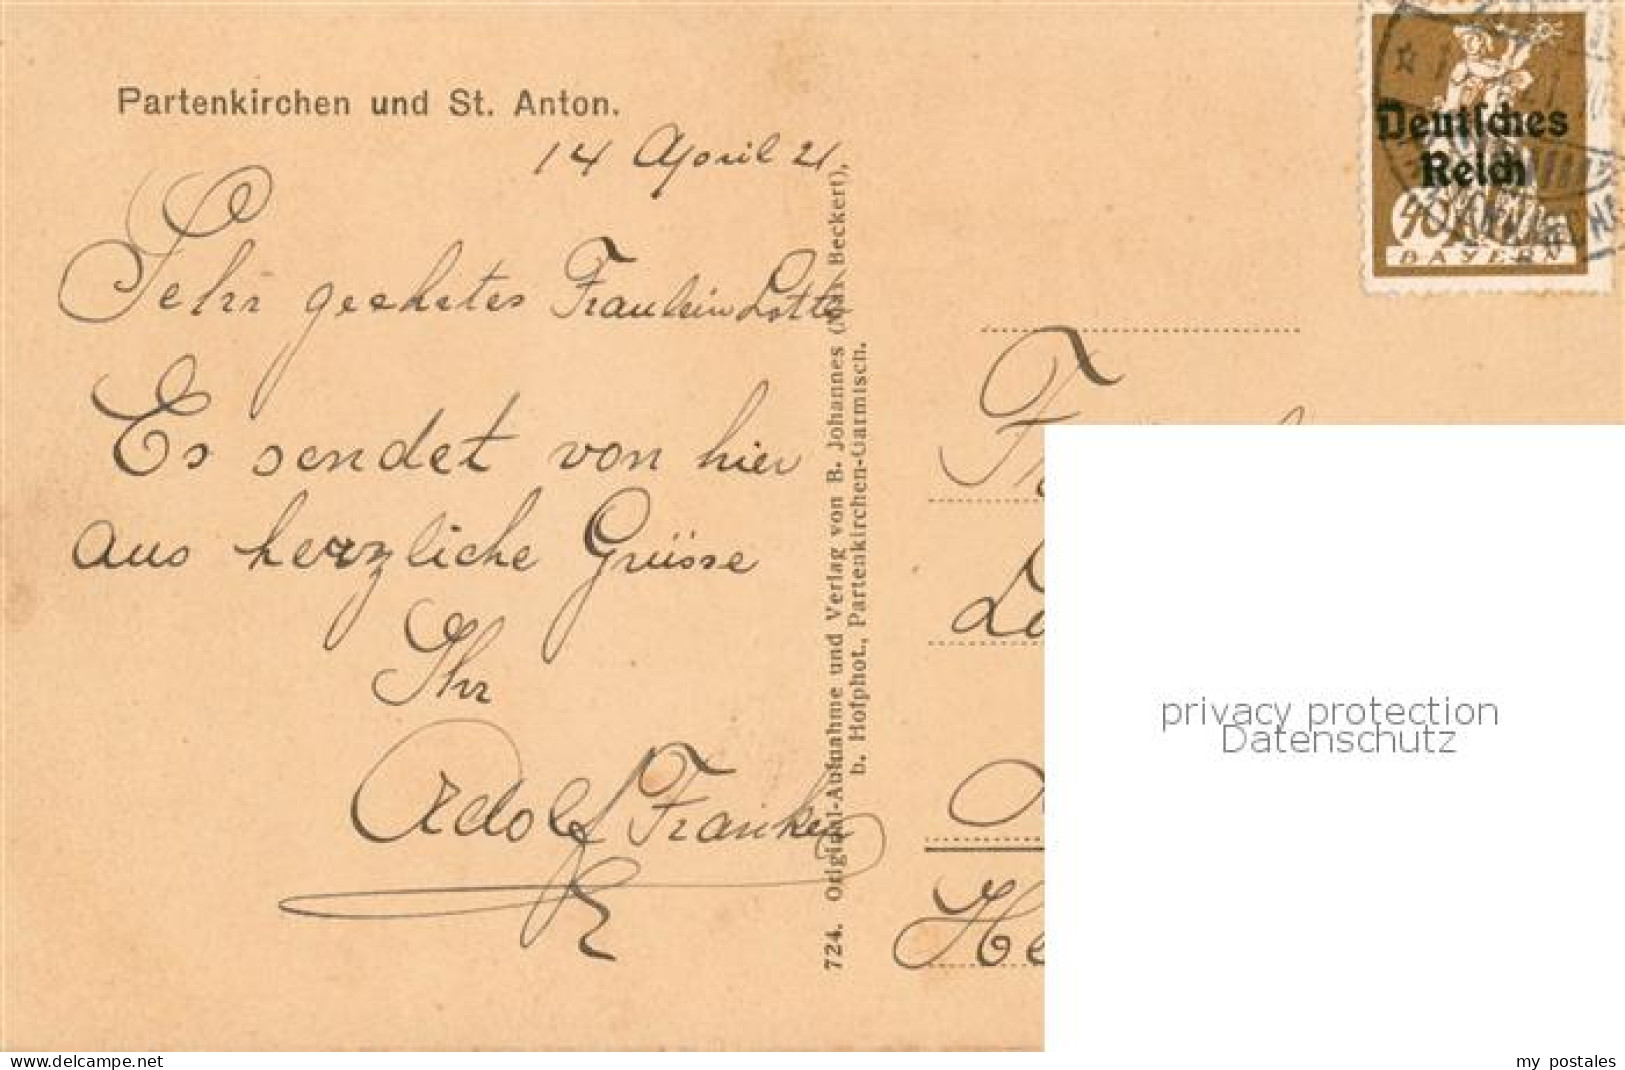 Partenkirchen und St. Anton.
14 April 21.
Sehr geehrtes Fraulein Lotte
Es sendet von hier
aus herzliche Grüsse
Ihr
Adolf Franken
724. Original-Aufnahme und Verlag von B. Johannes (Inh. Beckert),
b. Hofphot., Partenkirchen-Garmisch.
Deutsches
Reich
40
BAYERN
privacy protection
Datenschutz
www.delcampe.net
my_postales